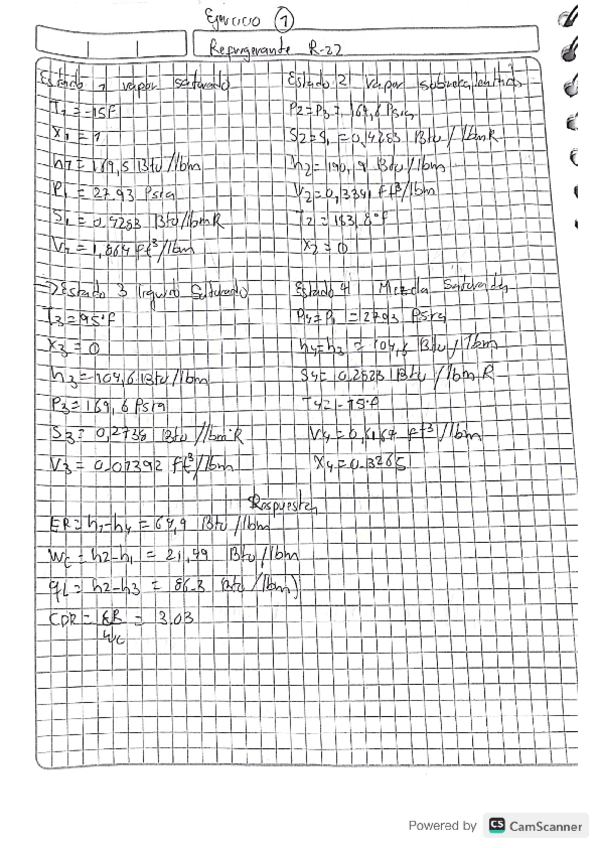 Ejercicio 1
Refrigerante R-22
Estado 1 vapor saturado
T1 = -15F
X1 = 1
h1 = 169,5 Btu/lbm
P1 = 27.93 Psig
S1 = 0,4283 Btu/lbmR
V1 = 1,864 ft³/lbm
Estado 2 vapor
P2 = P3 = 169,6 Psig
S2 = S1 = 0,4283 Btu/lbmR
h2 = 190,9 Btu/lbm
V2 = 0,3341 ft³/lbm
T2 = 183,8°F
X2 = 0
→ Estado 3 liquido Saturado
T3 = 95°F
X3 = 0
h3 = 104,6 Btu/lbm
P3 = 169,6 Psig
S3 = 0,2738 Btu/lbm°R
V3 = 0.01392 ft³/lbm
Estado 4 Mezcla Saturada
P4 = P1 = 27.93 Psig
h4 = h3 = 104,6 Btu/lbm
S4 = 0,2823 Btu/lbm R
T4 = -15°F
V4 = 0,6167 ft³/lbm
X4 = 0.3265
Respuesta
ER = h1-h4 = 64,9 Btu/lbm
Wc = h2-h1 = 21,49 Btu/lbm
qL = h2-h3 = 86.3 Btu/lbm
COR = ER/Wc = 3.03
Powered by CS CamScanner